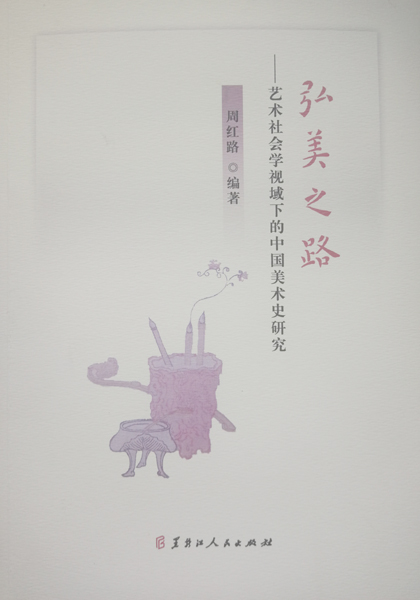 弘美之路
——艺术社会学视域下的中国美术史研究
周红路◎编著
黑龙江人民出版社